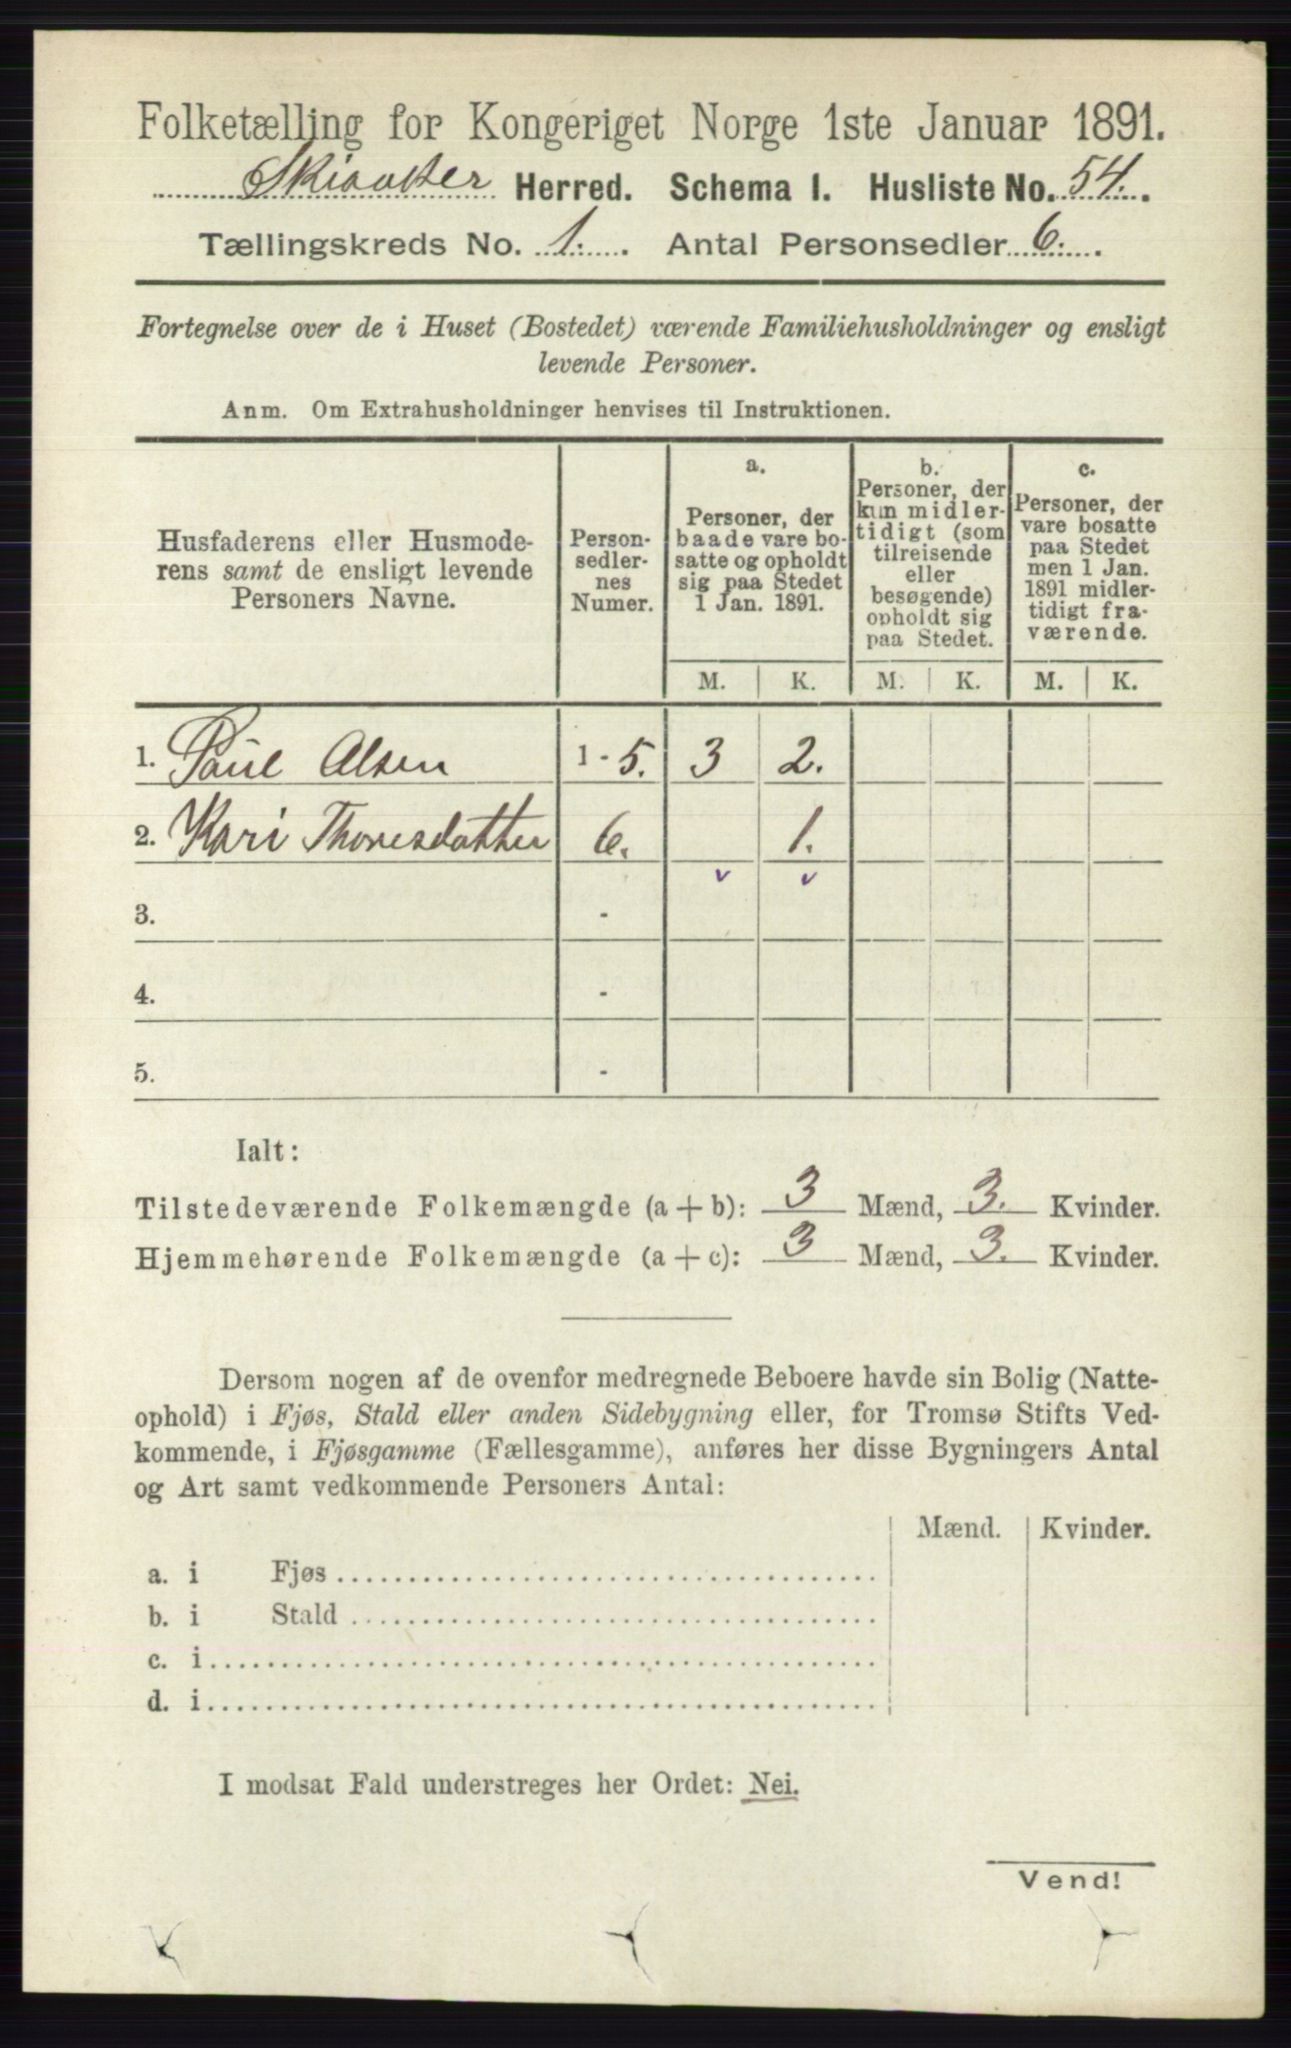 Folketælling for Kongeriget Norge 1ste Januar 1891.
Skiaaker Herred. Schema I. Husliste No. 54.
Tællingskreds No. 1. Antal Personsedler 6.
Fortegnelse over de i Huset (Bostedet) værende Familiehusholdninger og ensligt
levende Personer.
Anm. Om Extrahusholdninger henvises til Instruktionen.
Husfaderens eller Husmode-
rens samt de ensligt levende
Personers Navne.
Person-
sedler-
nes
Numer.
a.
Personer, der
baade vare bo-
satte og opholdt
sig paa Stedet
1 Jan. 1891.
b.
Personer, der
kun midler-
tidigt (som
tilreisende
eller
besøgende)
opholdt sig
paa Stedet.
c.
Personer, der
vare bosatte
paa Stedet
men 1 Jan.
1891 midler-
tidigt fra-
værende.
M. K. M. K. M. K.
1. Paul Olsen 1 - 5. 3 2.
2. Kari Thoresdatter 6. 1.
3. -
4. -
5. -
Ialt:
Tilstedeværende Folkemængde (a + b): 3 Mænd, 3. Kvinder.
Hjemmehørende Folkemængde (a + c): 3 Mænd, 3. Kvinder.
Dersom nogen af de ovenfor medregnede Beboere havde sin Bolig (Natte-
ophold) i Fjøs, Stald eller anden Sidebygning eller, for Tromsø Stifts Ved-
kommende, i Fjøsgamme (Fællesgamme), anføres her disse Bygningers Antal
og Art samt vedkommende Personers Antal:
Mænd. Kvinder.
a. i Fjøs
b. i Stald
c. i
d. i
I modsat Fald understreges her Ordet: Nei.
Vend!